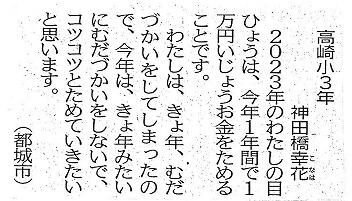 高崎小3年
神田橋幸花
こなは
2023年のわたしの目
ひょうは、今年1年間で1
万円いじょうお金をためる
ことです。
わたしは、きょ年、むだ
づかいをしてしまったの
で、今年は、きょ年みたい
にむだづかいをしないで、
コツコツとためていきたい
と思います。
（都城市）